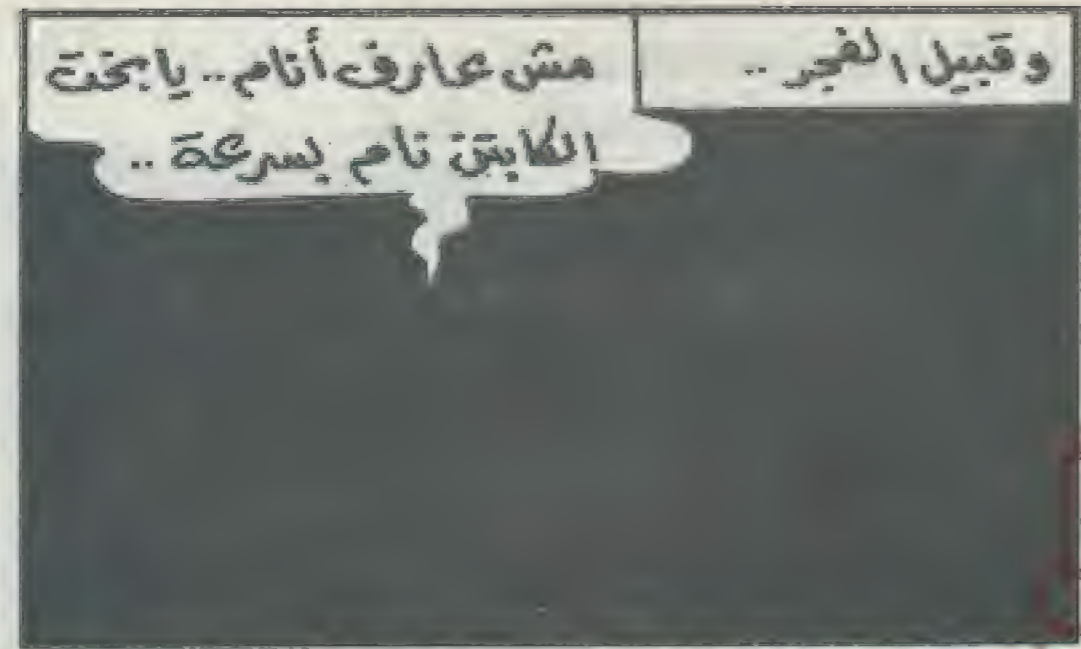 وقبيل الفجر ..
مش عارف أنام.. يا بخت
الكابتن نام بسرعة ..